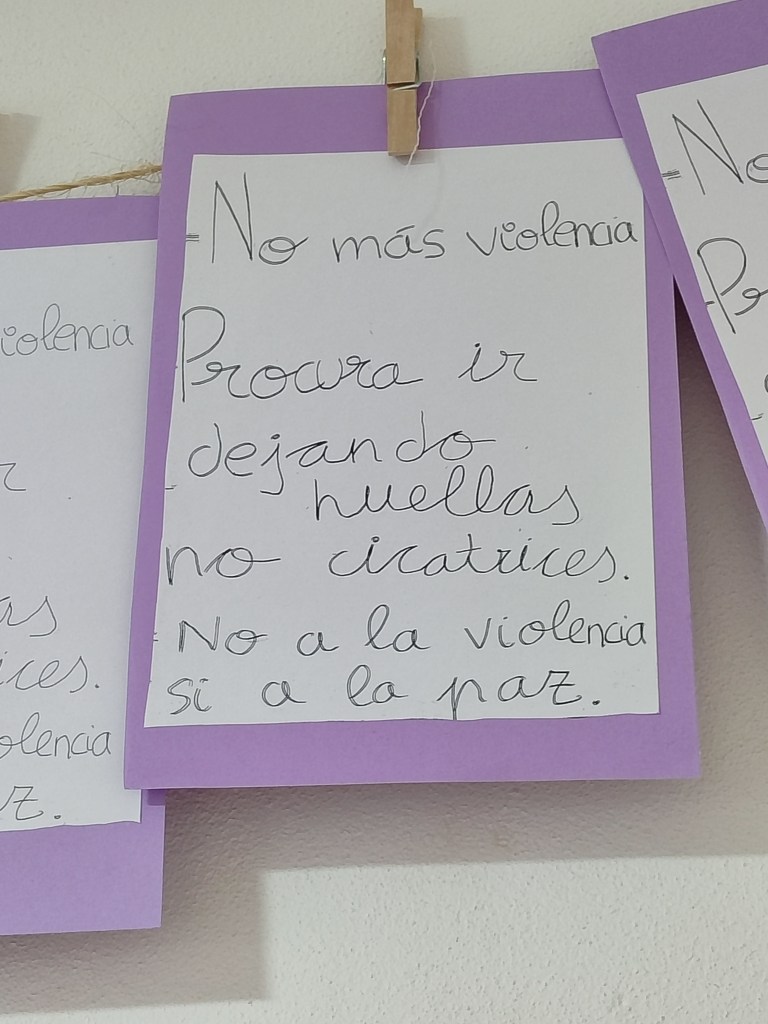 - No más violencia
- Procura ir
dejando
- huellas
no cicatrices.
- No a la violencia
si a la paz.
iolencia
r
as
ices.
olencia
z.
- No
- Pr